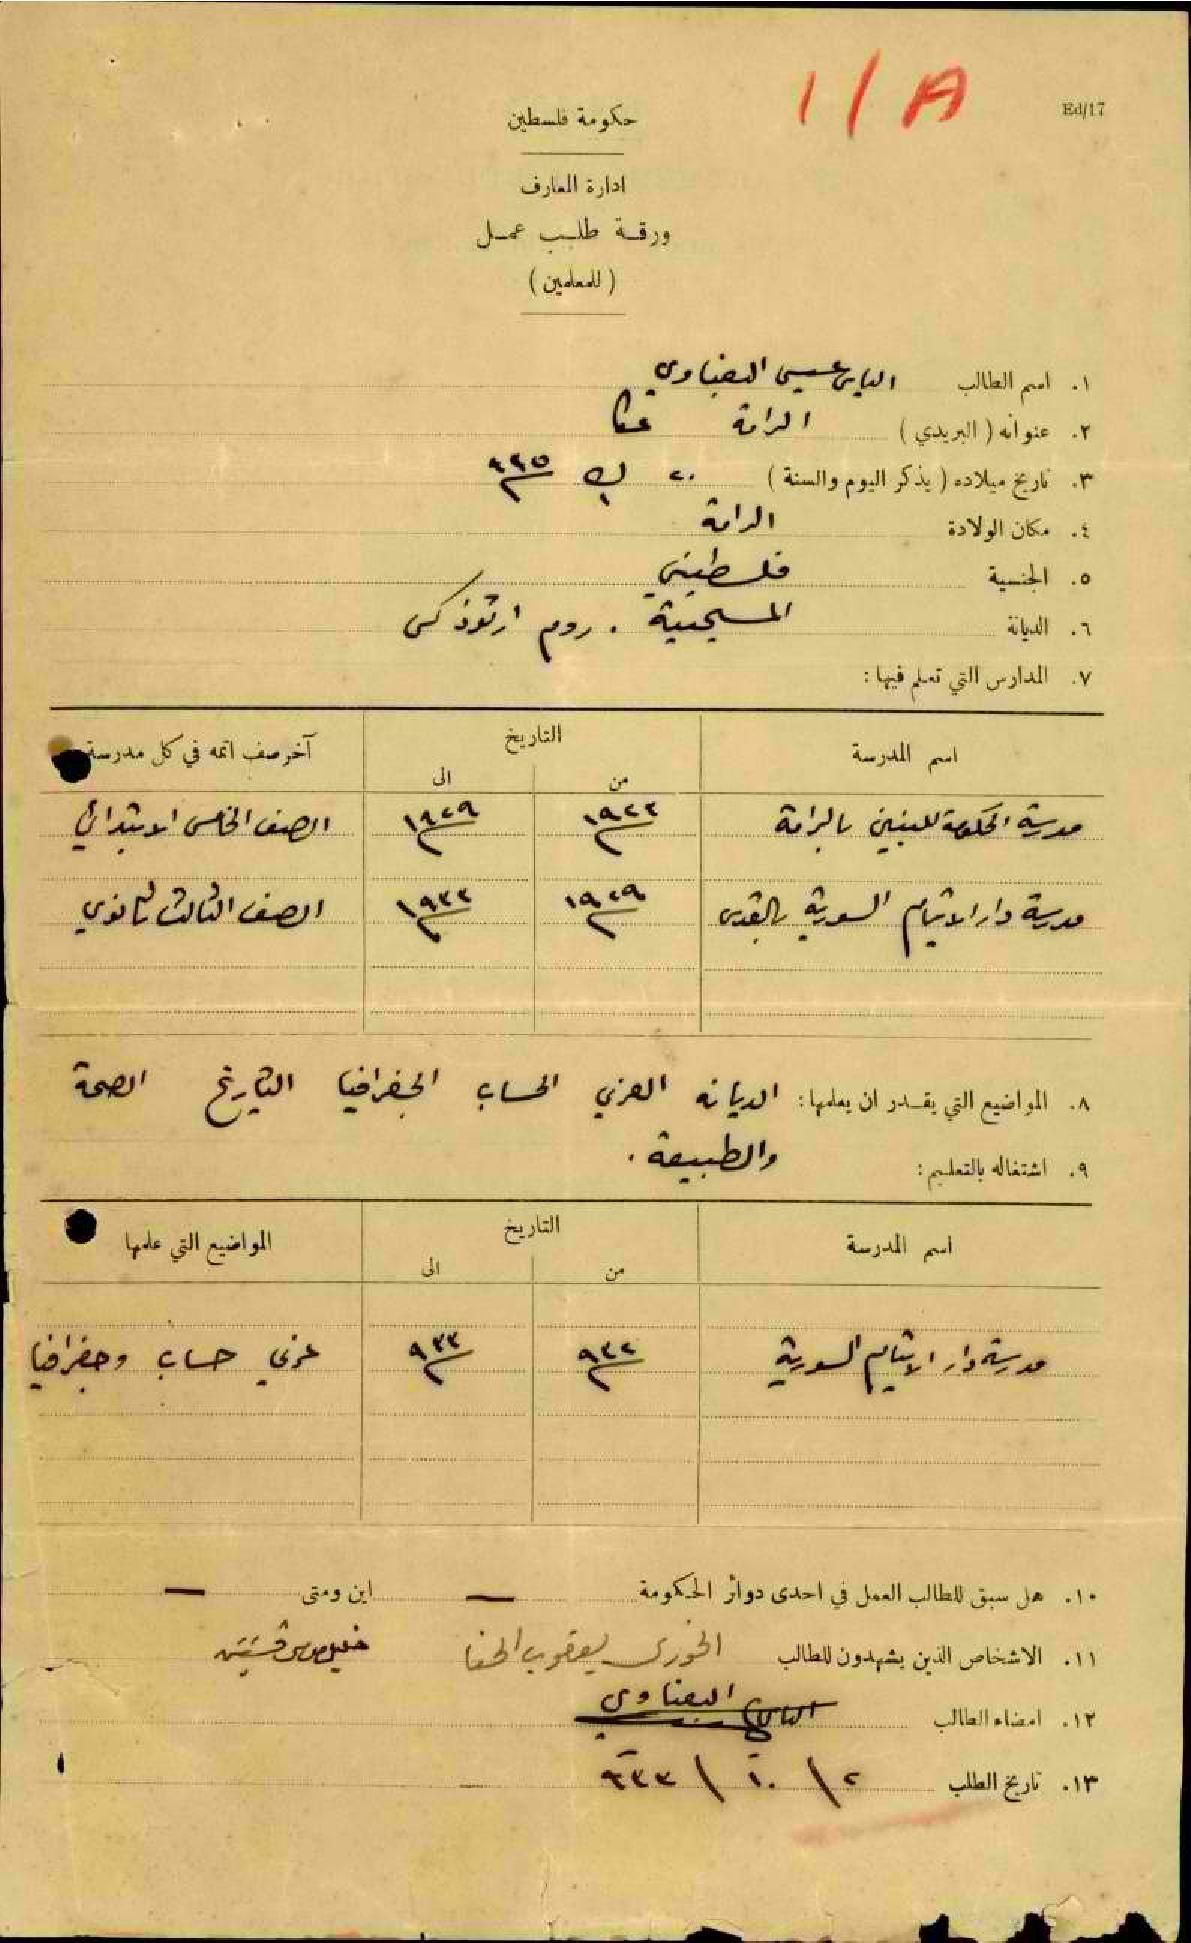 1/A
Ed/17
حكومة فلسطين
ادارة المعارف
ورقة طلب عمل
( للمعلمين )
١. اسم الطالب الياس عيسى البعناوي
٢. عنوانه ( البريدي ) الرامة عكا
٣. تاريخ ميلاده ( يذكر اليوم والسنة ) ٢٠ ك١
٤. مكان الولادة الرامة
٥. الجنسية فلسطيني
٦. الديانة المسيحية . روم ارثوذكس
٧. المدارس التي تعلم فيها :
اسم المدرسة التاريخ آخر صف اتمه في كل مدرسة
من الى
مدرسة الحكومة للبنين بالرامة ١٩٢٢ ١٩٢٩ الصف الخامس الابتدائي
مدرسة دار الايتام السورية بالقدس ١٩٢٩ ١٩٣٢ الصف الثالث ثانوي
٨. المواضيع التي يقدر ان يعلمها : الديانه العربي الحساب الجغرافيا التاريخ الصحة
والطبيعة .
٩. اشتغاله بالتعليم :
اسم المدرسة التاريخ المواضيع التي علمها
من الى
مدرسة دار الايتام السورية ٩٣٢ ٩٣٣ عربي حساب وجغرافيا
١٠. هل سبق للطالب العمل في احدى دوائر الحكومة — اين ومتى —
١١. الاشخاص الذين يشهدون للطالب الخوري يعقوب الحنا
١٢. امضاء الطالب الياس البعناوي
١٣. تاريخ الطلب ٢ / ١٠ / ٩٣٣